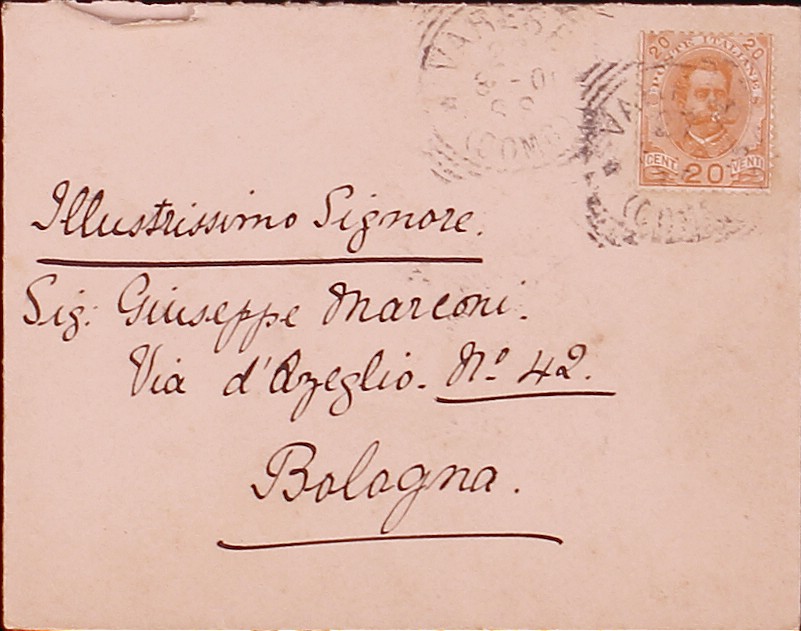 VARESE
(COMO)
20 POSTE ITALIANE 20
CENT. 20 VENTI
Illustrissimo Signore.
Sig. Giuseppe Marconi.
Via d'Azeglio. No. 42.
Bologna.